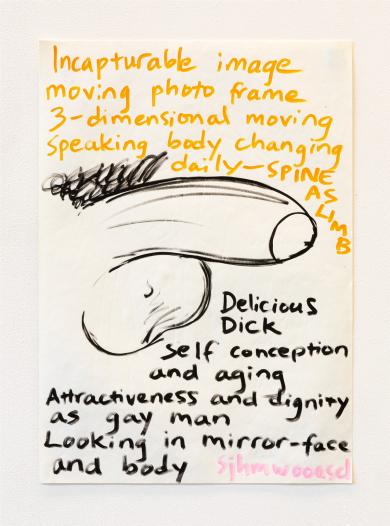 Incapturable image
moving photo frame
3-dimensional moving
speaking body changing
daily—SPINE
AS
LIMB
Delicious
Dick
self conception
and aging
Attractiveness and dignity
as gay man
Looking in mirror-face
and body